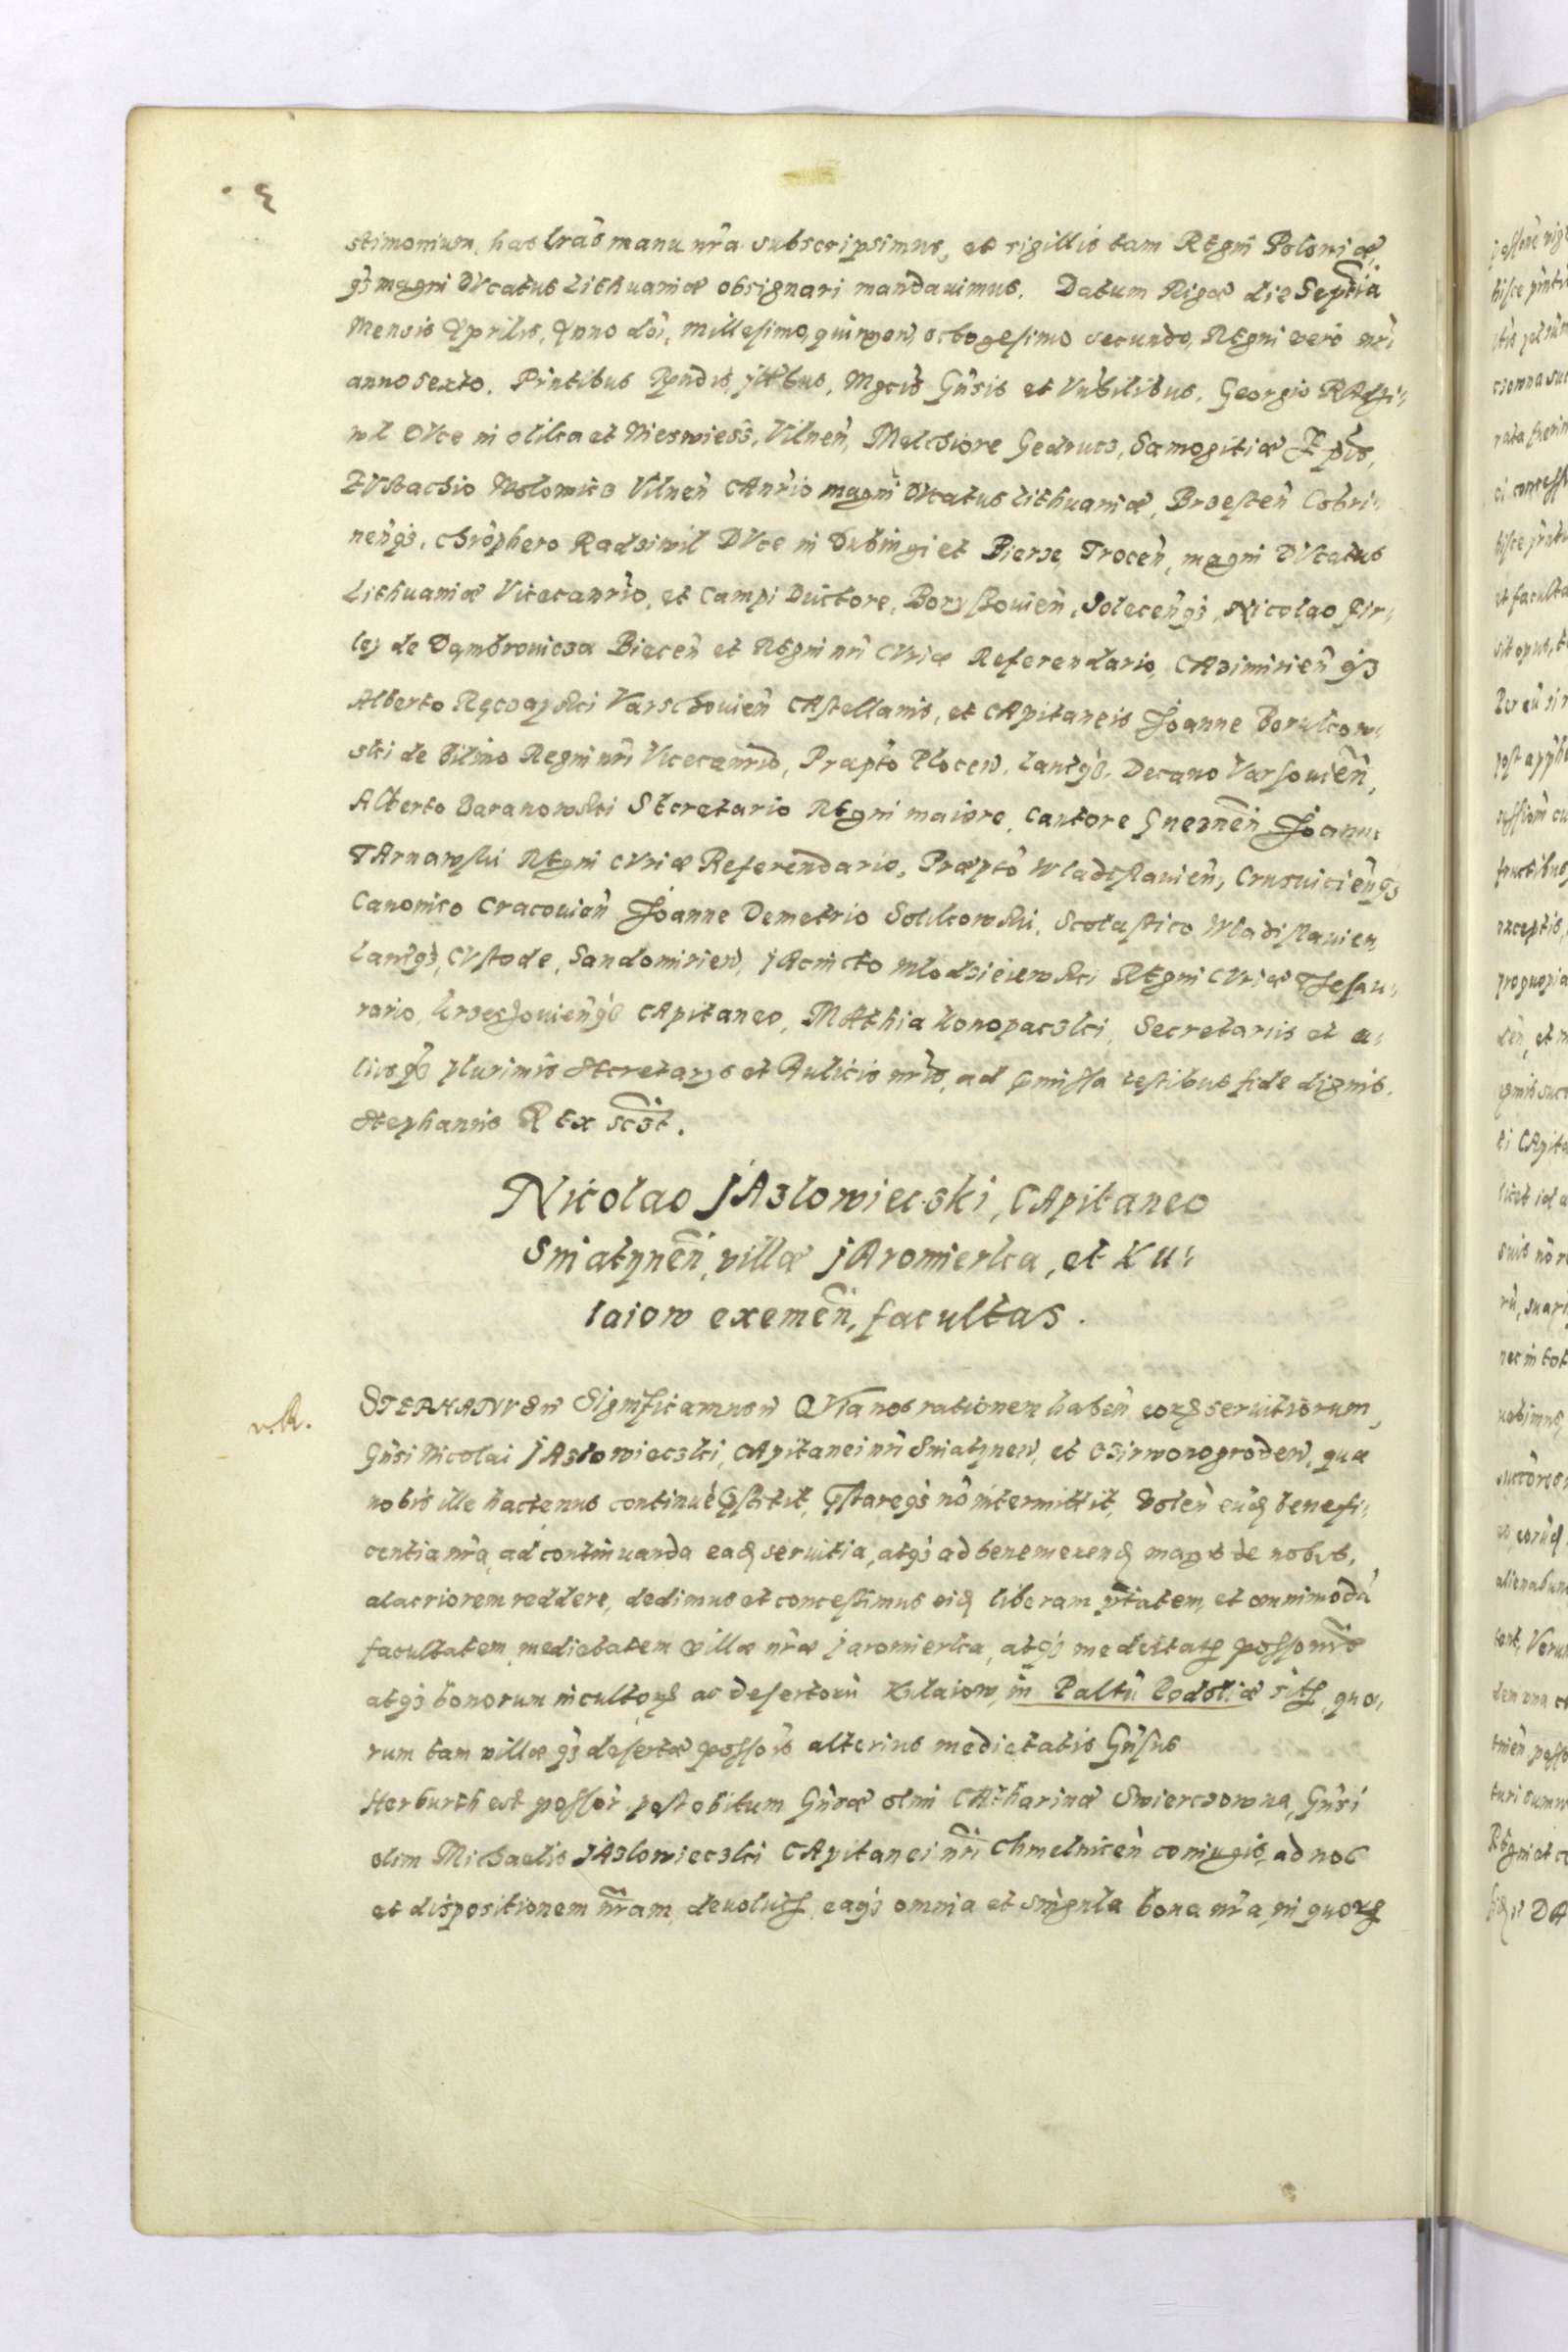 stimonium, has lrãs manu nrã subscripsimus, et sigillis tam Regni Poloniæ,
qȝ magni DVcatus Lithuaniæ obsignari mandauimus. Datum Rigæ die Septĩa
Mensis Aprilis, Anno dñi, Millesimo, quingeñ, octogesimo secundo, REgni vero nri
anno sexto. Pñtibus Rñdis, jllbus, Mgcis Gñsis et Nobilibus, Georgio RAdzi=
wil DVce in olika et Nieswiess, Vilneñ, Melchiore Gedroicz, Samogitiæ Epis,
EVstachio Wolowicz Vilneñ CAnrio magni DVcatus Lithuaniæ, Brzesteñ Cobri=
neñqȝ, Chrõphero Radziwil DVce in Dubingi et Bierze, Troceñ, magni DVcatus
Lithuaniæ Vicecanrio, et Campi Ductore, Boryssouieñ, Soleceñqȝ, Nicolao Fir=
ley de Dambrowicza Bieceñ et REgni nri CVriæ Referendario, CAzimirieñ qȝ
Alberto Ręczayski Varschouieñ CAstellanis, et CApitaneis Joanne Borukow=
ski de Bilino Regni nri Vicecanrio, Præpto Ploceñ, Lanciqȝ, Decano Varsouieñ,
Alberto Baranowski SEcretario REgni maiore, Cantore Gnezneñ Joanne
TArnawski REgni CVriæ Referendario, Præpto Wladislauieñ, Crusuicieñqȝ
Canonico Cracouieñ Joanne Demetrio Solikowski, Scolastico Wladislauieñ
Lanciqȝ, CVstode, Sandomirieñ, jAcincto Mlodzieiewski REgni CVriæ Thesau=
rario, krzeczouieñqȝ CApitaneo, MAthia Konopaczki, Secretariis et a=
liisqȝ plurimis Secretarys et Aulicis nris, ad pmissa testibus fide dignis.
Stephanus REx sczt.
Nicolao jAzlowieczki, CApitaneo
Sniatyneñ, villæ jAromierka, et Ku=
laiow exemeñ, facultas.
vR.
STEPHANVS Significamus QVia nos rationem habeñ eorȝ seruitiorum,
Gñsi Nicolai jAzlowieczki, CApitanei nri Sniatyneñ, et Czirwonogrodeñ, quæ
nobis ille hactenus continuè pstitit, pstareqȝ nõ intermittit, Voleñ eũd benefi=
centia nrã, ad continuanda ead seruitia, atqȝ ad benemerend magis de nobis,
alacriorem reddere, dedimus et concessimus eid liberam ptatem, et omnimodã
facultatem, medietatem villæ nræ jaromierka, atqȝ medietatẽ possonis
atqȝ bonorum incultorȝ ac desertorũ Kulaiow, in Paltũ Podoliæ sitȝ, quo=
rum tam villæ qȝ desertæ possois alterius medietatis Gñsus
Herburth est possor post obitum Gñsæ olim CAtharinæ Swierczowna, Gñsi
olim Michaelis JAzlowieczki CApitanei nri Chmelniceñ coniugis, ad nos
et dispositionem nram, deuolutȝ, eaqȝ omnia et singula bona nrã, in quorȝ